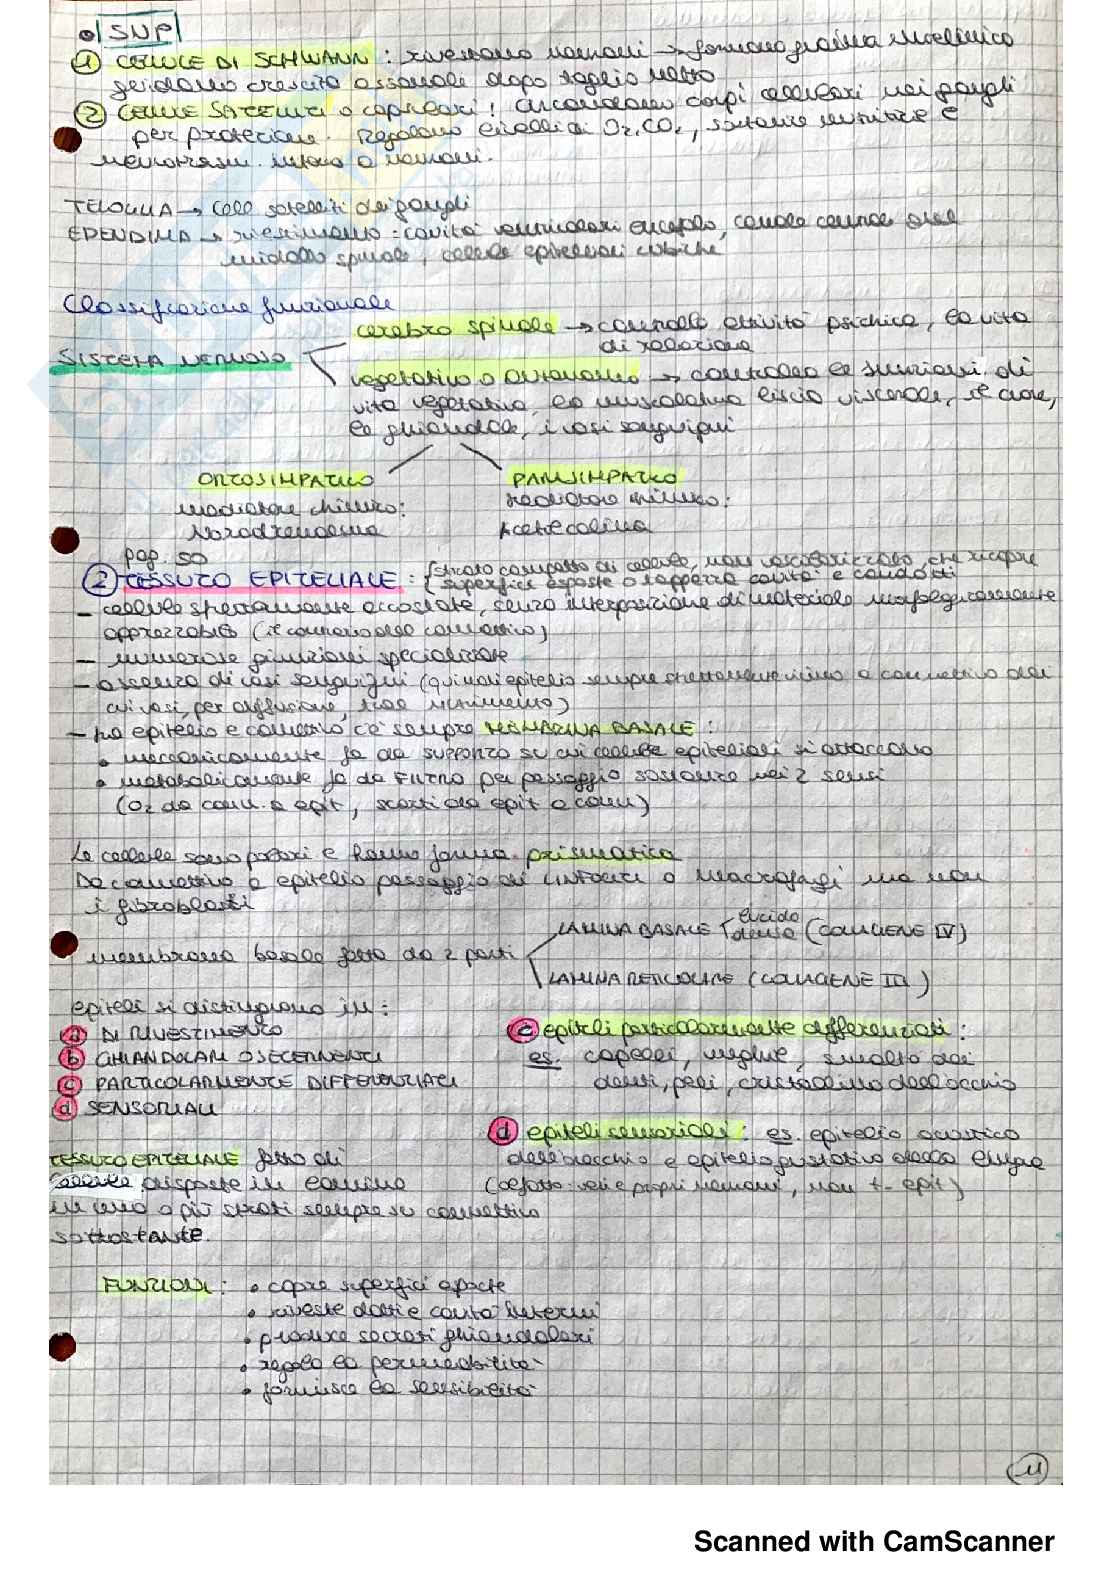 • SNP
1 CELLULE DI SCHWANN : rivestono neuroni → formano guaina mielinica
guidano crescita assonale dopo taglio netto
2 CELLULE SATELLITI o capsulari : circondano corpi cellulari nei gangli
per protezione. Regolano livelli di O2, CO2, sostanze nutritive e
neurotrasm. intorno a neuroni.
TELOGLIA → cell satelliti dei gangli
EPENDIMA → rivestimento : cavità ventricolari encefalo, canale centrale del
midollo spinale, cellule epiteliali cubiche
Classificazione funzionale
cerebro spinale → controllo attività psichica, la vita
di relazione
SISTEMA NERVOSO
vegetativo o autonomo → controlla le funzioni di
vita vegetativa, la muscolatura liscia viscerale, il cuore,
le ghiandole, i vasi sanguigni
ORTOSIMPATICO PARASIMPATICO
mediatore chimico: mediatore chimico:
Noradrenalina Acetilcolina
pag. 50
2 TESSUTO EPITELIALE : { strato compatto di cellule, non vascolarizzato, che ricopre
superfici esposte o tappezza cavità e condotti
– cellule strettamente accostate, senza interposizione di materiale morfologicamente
apprezzabile (il contrario del connettivo)
– numerose giunzioni specializzate
– assenza di vasi sanguigni (quindi epitelio sempre strettamente vicino a connettivo dai
cui vasi, per diffusione, trae nutrimento)
– tra epitelio e connettivo c'è sempre MEMBRANA BASALE :
• meccanicamente fa da supporto su cui cellule epiteliali si attaccano
• metabolicamente fa da FILTRO per passaggio sostanze nei 2 sensi
(O2 da conn. a epit, scarti da epit a conn)
Le cellule sono polari e hanno forma prismatica
Da connettivo a epitelio passaggio di LINFOCITI o macrofagi ma non
i fibroblasti
LAMINA BASALE { lucida
densa (COLLAGENE IV)
membrana basale fatta da 2 parti
LAMINA RETICOLARE (COLLAGENE III)
epiteli si distinguono in :
a DI RIVESTIMENTO
b GHIANDOLARI O SECERNENTI
c PARTICOLARMENTE DIFFERENZIATI
d SENSORIALI
c epiteli particolarmente differenziati :
es. capelli, unghie, smalto dei
denti, peli, cristallino dell'occhio
d epiteli sensoriali : es. epitelio acustico
dell'orecchio e epitelio gustativo della lingua
(olfatto : veri e propri neuroni, non t. epit)
TESSUTO EPITELIALE fatto di
cellule disposte in lamine
in uno o più strati sempre su connettivo
sottostante.
FUNZIONI : • copre superfici esposte
• riveste dotti e cavità interni
• produce secreti ghiandolari
• regola la permeabilità
• fornisce la sensibilità
11
Scanned with CamScanner